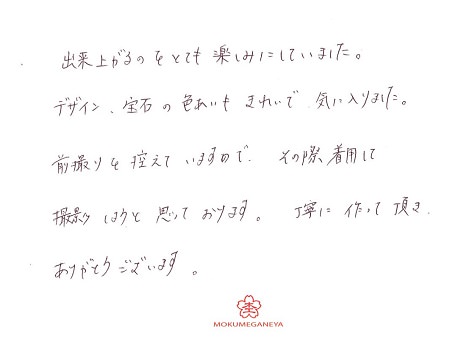 出来上がるのをとても楽しみにしていました。
デザイン、宝石の色あいもきれいで気に入りました。
前撮りを控えていますので、その際、着用して
撮影しようと思っております。丁寧に作って頂き、
ありがとうございます。
MOKUMEGANEYA